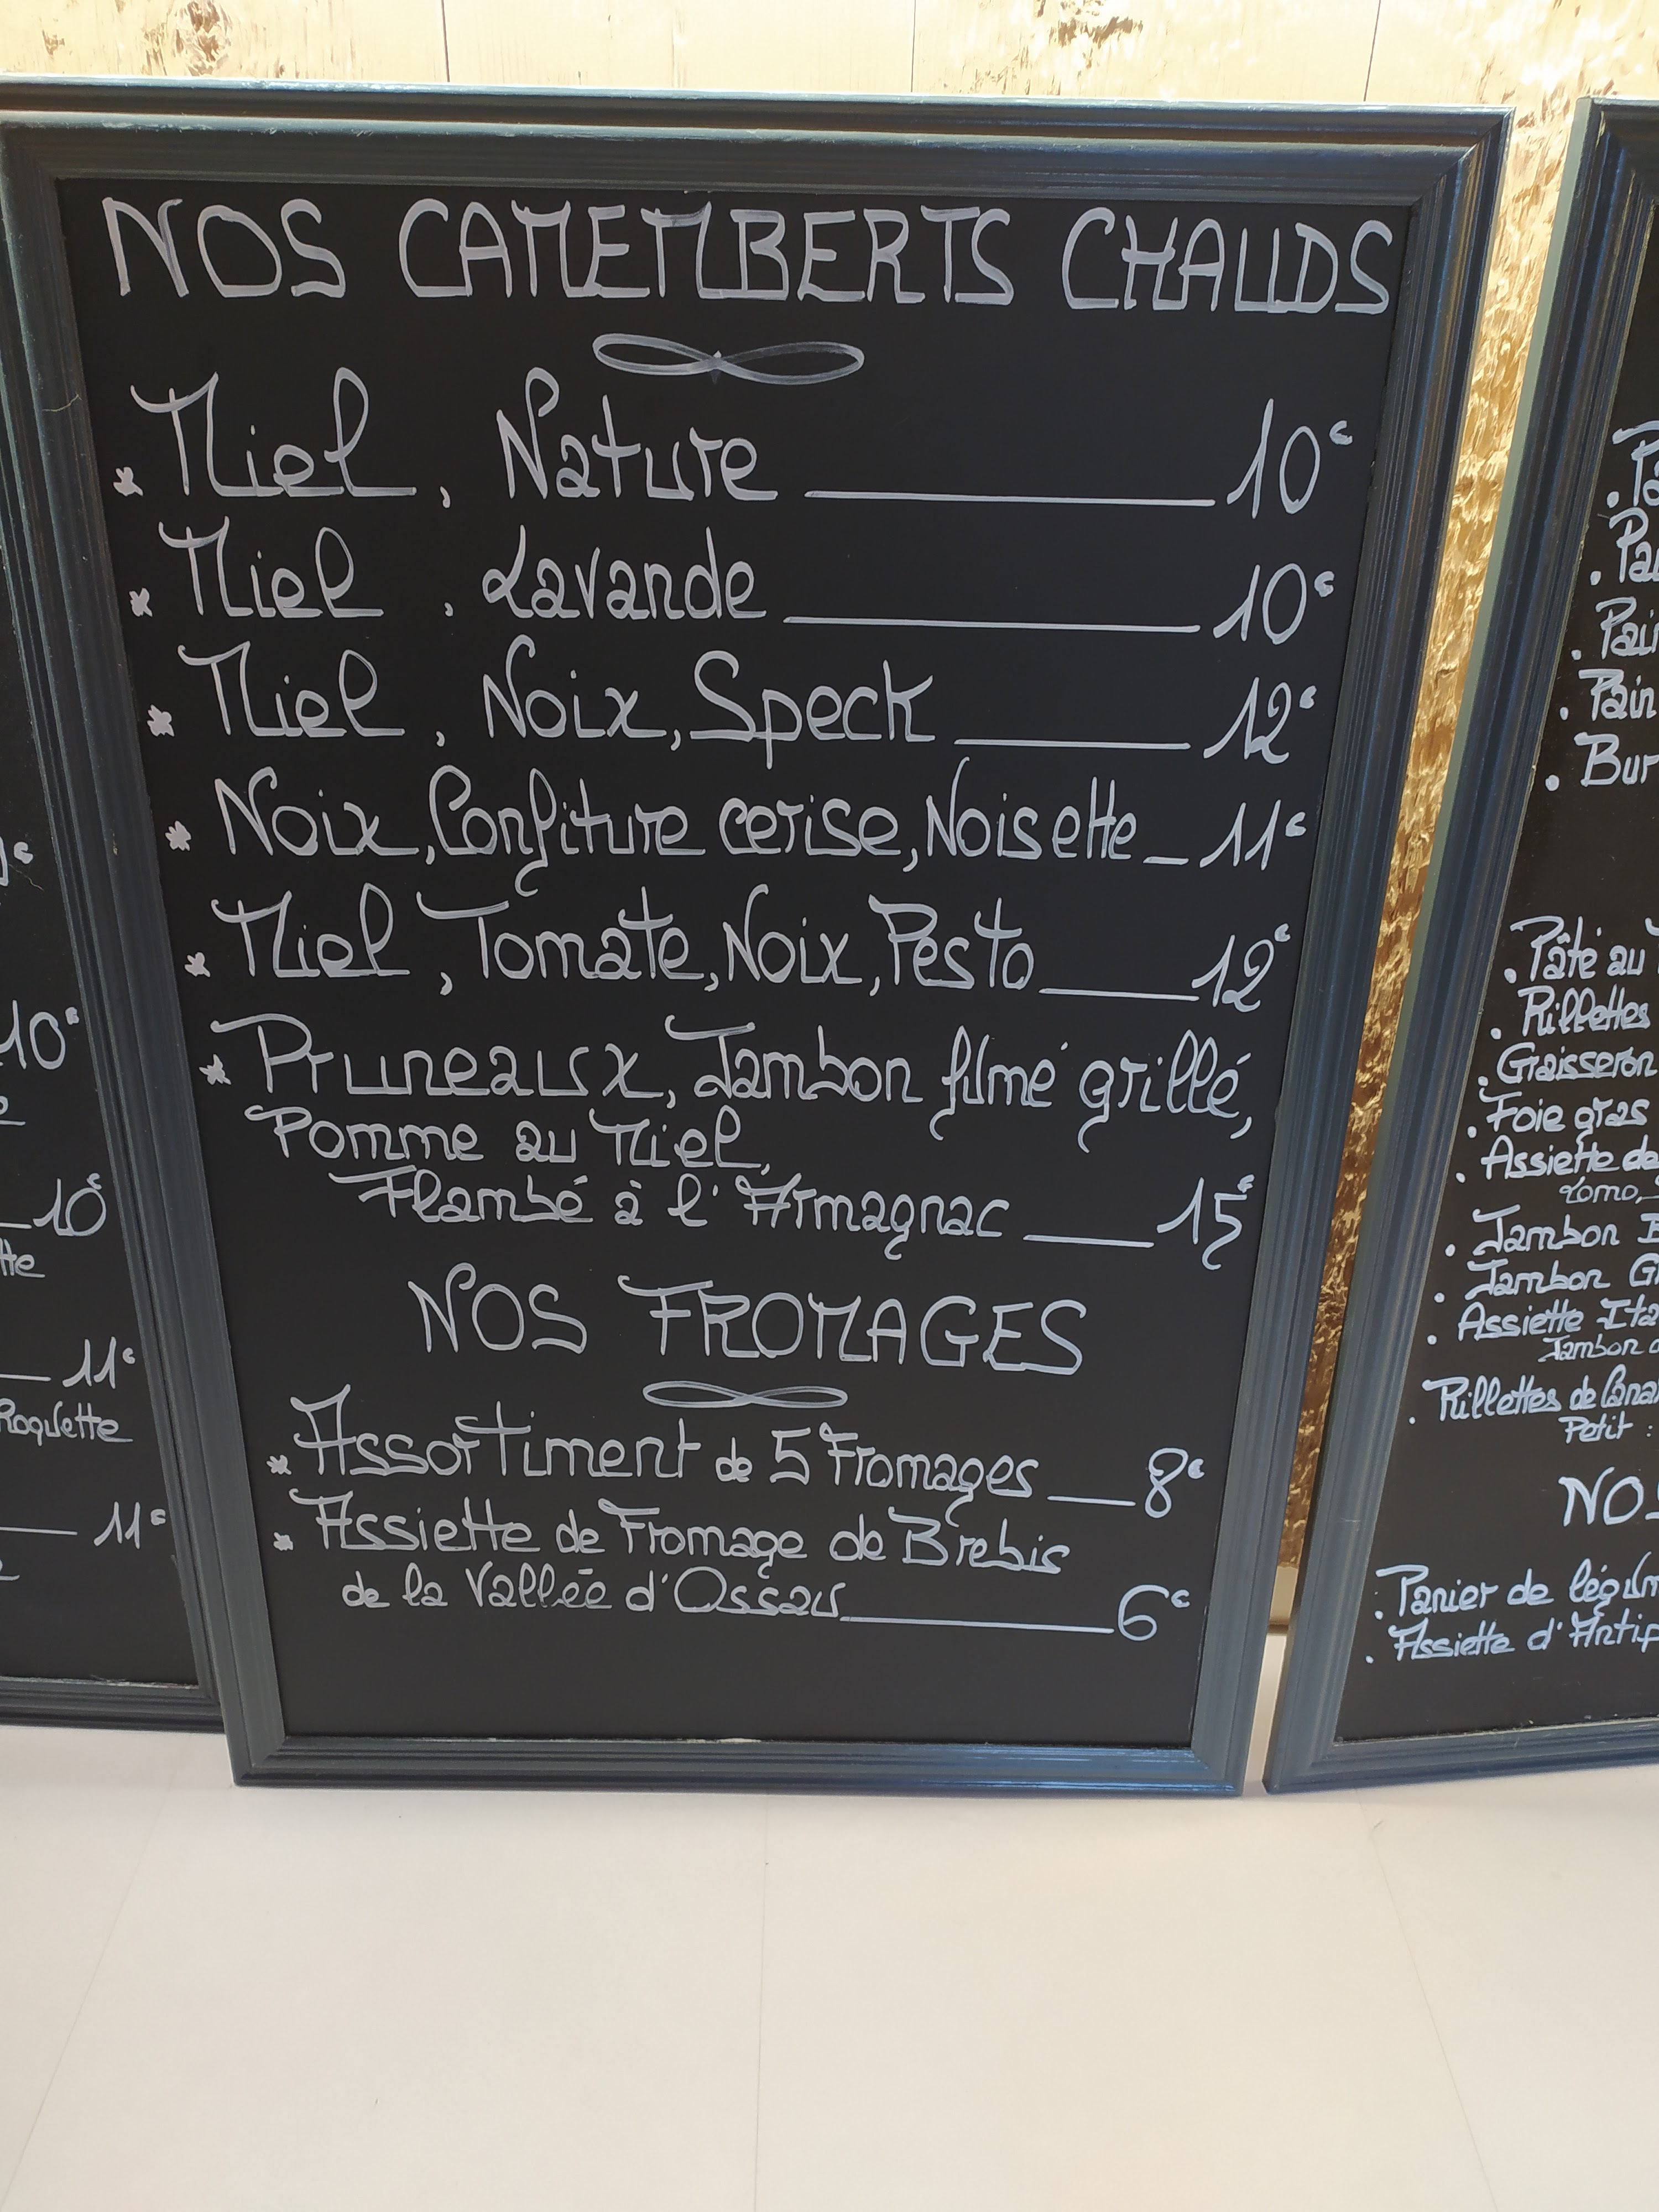 NOS CAMEMBERTS CHAUDS
* Miel, Nature 10€
* Miel, Lavande 10€
* Miel, Noix, Speck 12€
* Noix, Confiture cerise, Noisette 11€
* Miel, Tomate, Noix, Pesto 12€
* Pruneaux, Jambon fumé grillé,
Pomme au Miel,
Flambé à l'Armagnac 15€
NOS FROMAGES
* Assortiment de 5 Fromages 8€
* Assiette de Fromage de Brebis
de la Vallée d'Ossau 6€
10€
10€
11€
Roquette
11€
. Pain
. Bur
. Pâté au
. Rillettes
. Graisseron
. Foie gras
. Assiette de
Lomo,
. Jambon B
. Jambon G
. Assiette Ita
Jambon
. Rillettes de Cana
Petit :
NOS
. Panier de légum
. Assiette d'Antip